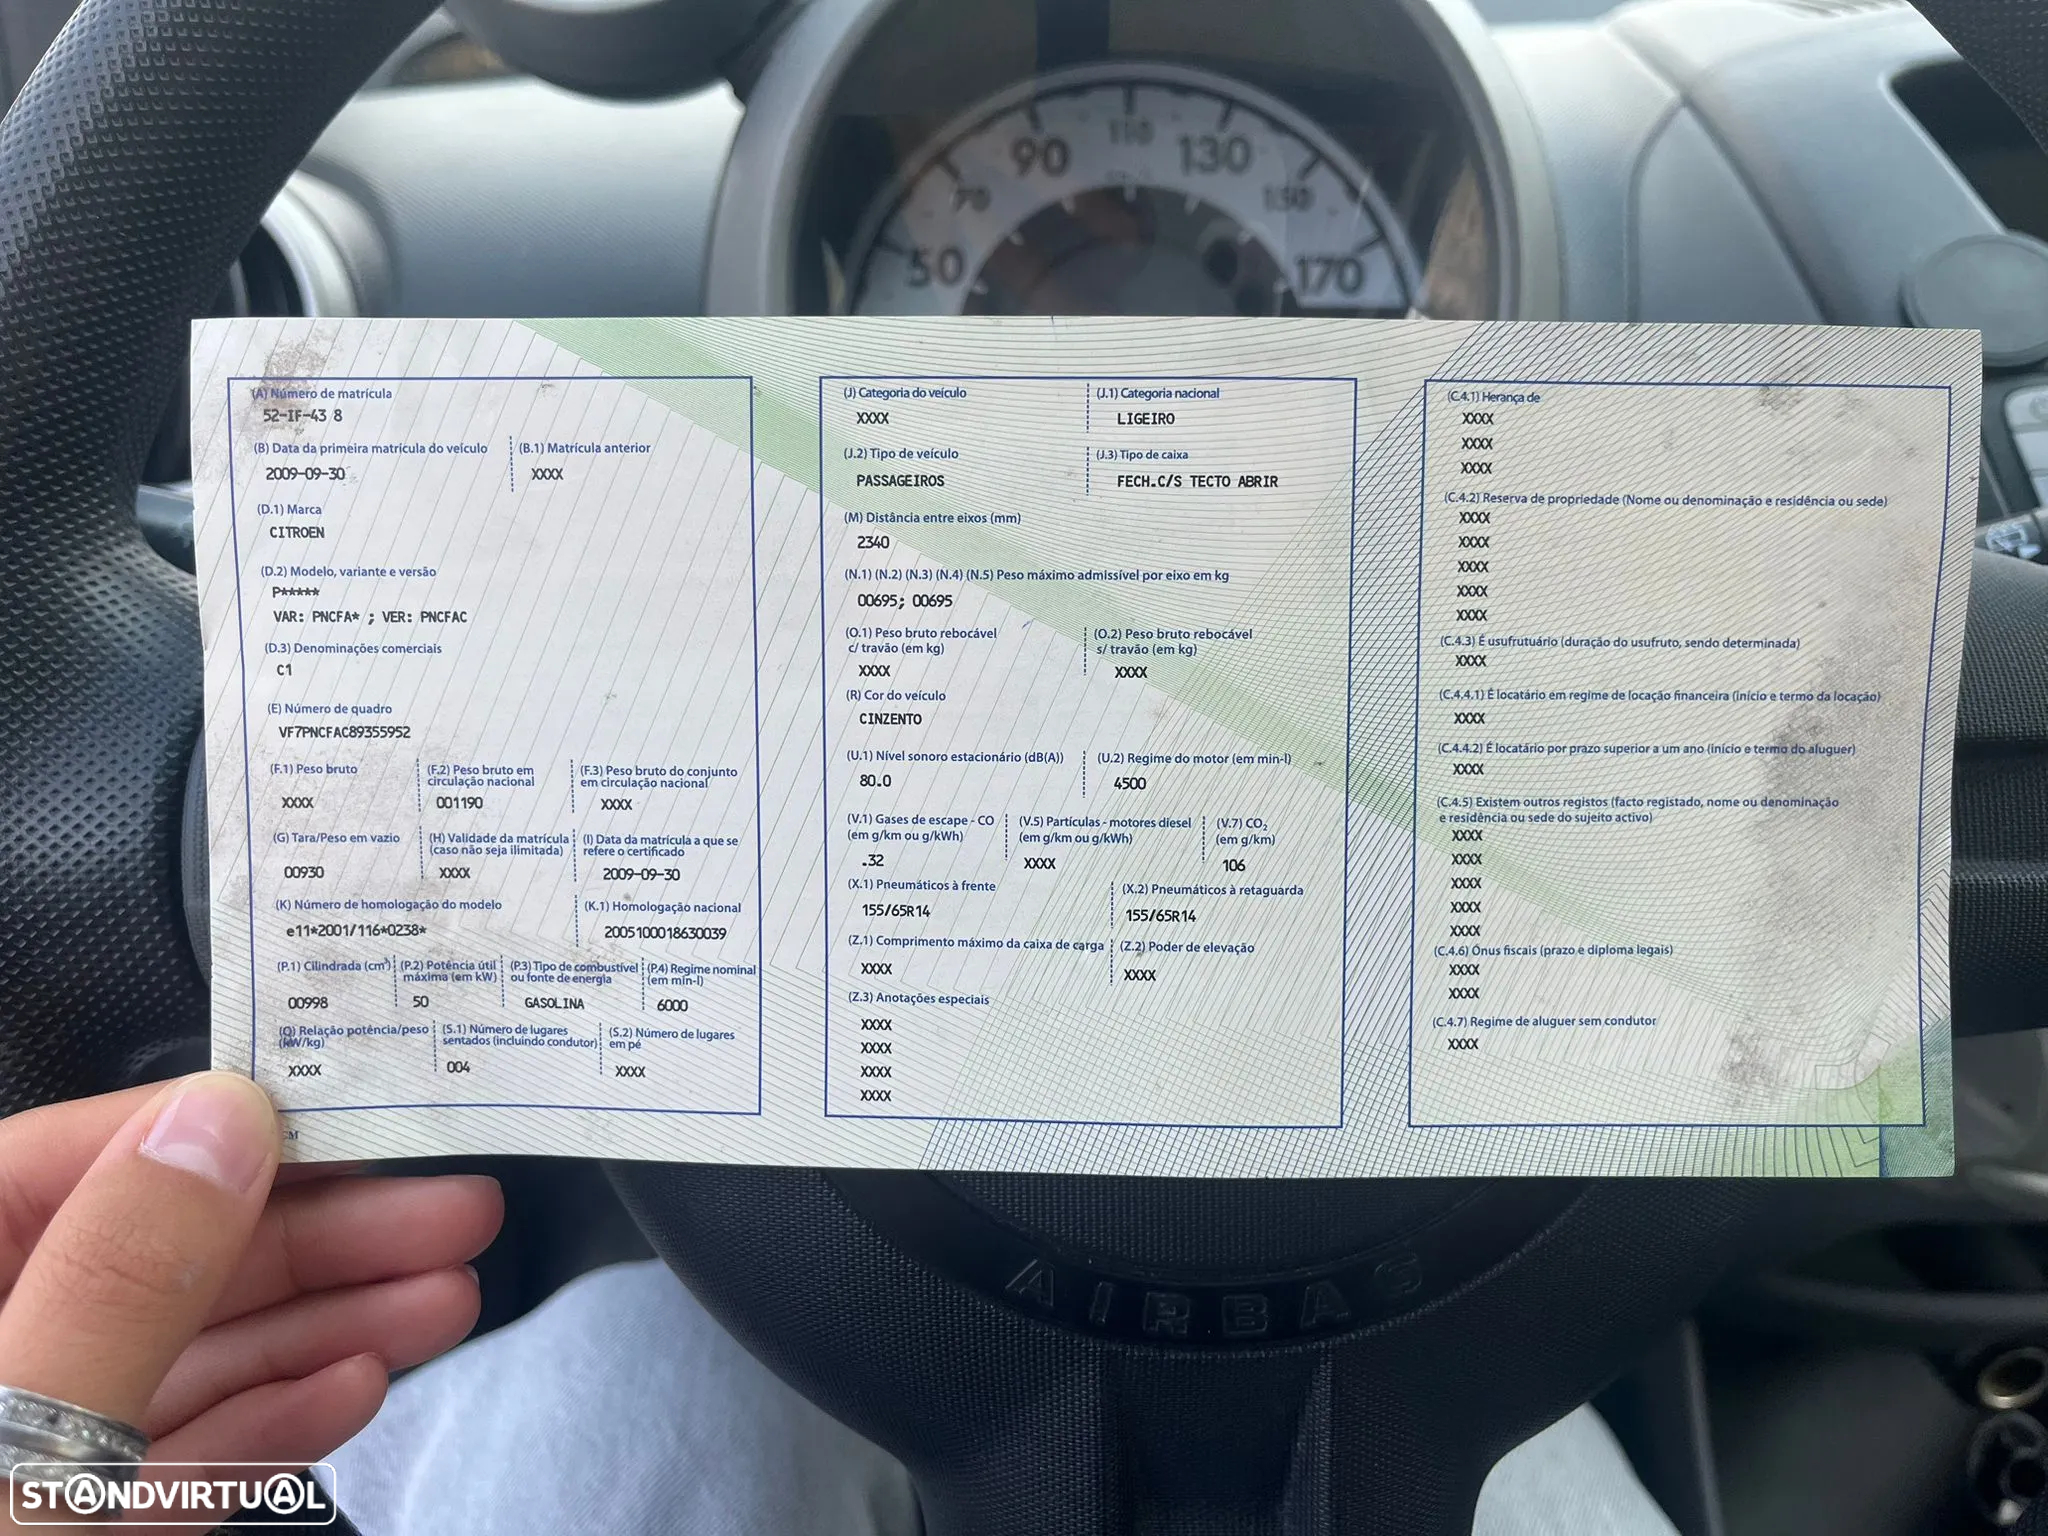 50
70
90
110
130
150
170
(A) Número de matrícula
52-IF-43 8
(B) Data da primeira matrícula do veículo
2009-09-30
(B.1) Matrícula anterior
XXXX
(D.1) Marca
CITROEN
(D.2) Modelo, variante e versão
P*****
VAR: PNCFA* ; VER: PNCFAC
(D.3) Denominações comerciais
C1
(E) Número de quadro
VF7PNCFAC89355952
(F.1) Peso bruto
XXXX
(F.2) Peso bruto em
circulação nacional
001190
(F.3) Peso bruto do conjunto
em circulação nacional
XXXX
(G) Tara/Peso em vazio
00930
(H) Validade da matrícula
(caso não seja ilimitada)
XXXX
(I) Data da matrícula a que se
refere o certificado
2009-09-30
(K) Número de homologação do modelo
e11*2001/116*0238*
(K.1) Homologação nacional
2005100018630039
(P.1) Cilindrada (cm³)
00998
(P.2) Potência útil
máxima (em kW)
50
(P.3) Tipo de combustível
ou fonte de energia
GASOLINA
(P.4) Regime nominal
(em min-l)
6000
(Q) Relação potência/peso
(kW/kg)
XXXX
(S.1) Número de lugares
sentados (incluindo condutor)
004
(S.2) Número de lugares
em pé
XXXX
CM
(J) Categoria do veículo
XXXX
(J.1) Categoria nacional
LIGEIRO
(J.2) Tipo de veículo
PASSAGEIROS
(J.3) Tipo de caixa
FECH.C/S TECTO ABRIR
(M) Distância entre eixos (mm)
2340
(N.1) (N.2) (N.3) (N.4) (N.5) Peso máximo admissível por eixo em kg
00695; 00695
(O.1) Peso bruto rebocável
c/ travão (em kg)
XXXX
(O.2) Peso bruto rebocável
s/ travão (em kg)
XXXX
(R) Cor do veículo
CINZENTO
(U.1) Nível sonoro estacionário (dB(A))
80.0
(U.2) Regime do motor (em min-l)
4500
(V.1) Gases de escape - CO
(em g/km ou g/kWh)
.32
(V.5) Partículas - motores diesel
(em g/km ou g/kWh)
XXXX
(V.7) CO₂
(em g/km)
106
(X.1) Pneumáticos à frente
155/65R14
(X.2) Pneumáticos à retaguarda
155/65R14
(Z.1) Comprimento máximo da caixa de carga
XXXX
(Z.2) Poder de elevação
XXXX
(Z.3) Anotações especiais
XXXX
XXXX
XXXX
XXXX
(C.4.1) Herança de
XXXX
XXXX
XXXX
(C.4.2) Reserva de propriedade (Nome ou denominação e residência ou sede)
XXXX
XXXX
XXXX
XXXX
XXXX
(C.4.3) É usufrutuário (duração do usufruto, sendo determinada)
XXXX
(C.4.4.1) É locatário em regime de locação financeira (início e termo da locação)
XXXX
(C.4.4.2) É locatário por prazo superior a um ano (início e termo do aluguer)
XXXX
(C.4.5) Existem outros registos (facto registado, nome ou denominação
e residência ou sede do sujeito activo)
XXXX
XXXX
XXXX
XXXX
XXXX
(C.4.6) Ónus fiscais (prazo e diploma legais)
XXXX
XXXX
(C.4.7) Regime de aluguer sem condutor
XXXX
AIRBAG
STANDVIRTUAL